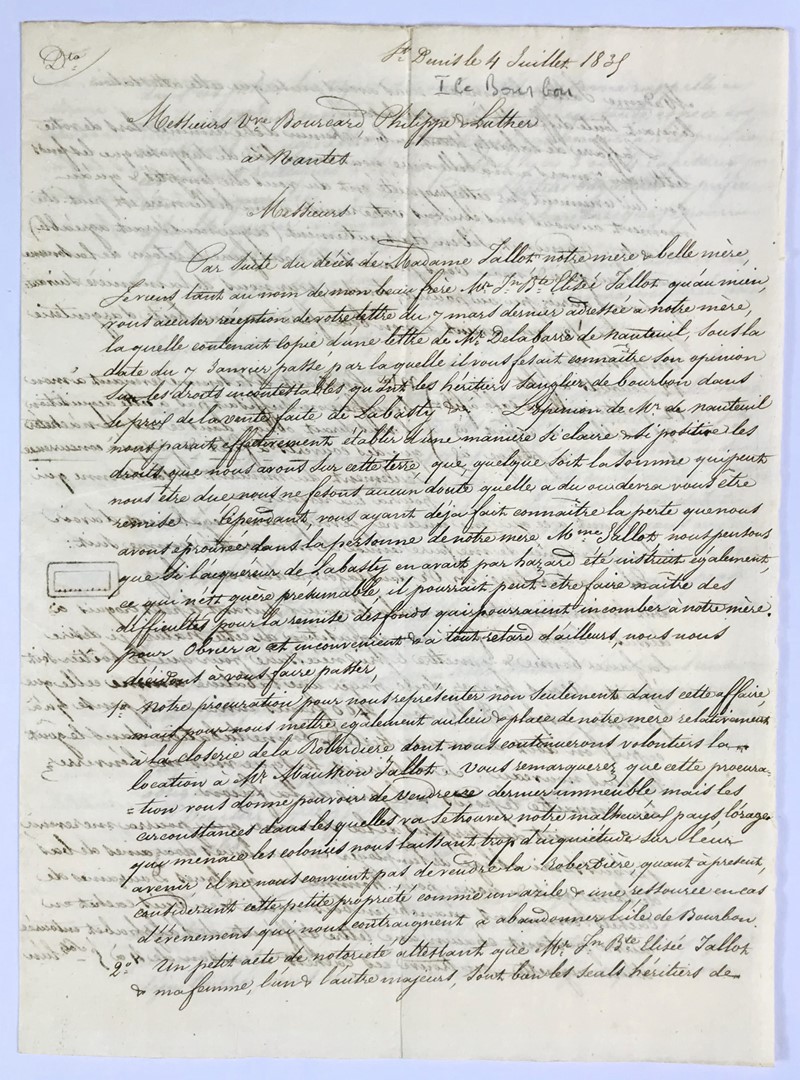 Dta
St Denis le 4 Juillet 1835
Ile Bourbon
Messieurs Vve Bourcard, Philippe & Luther
à Nantes
Messieurs
Par suite du décès de Madame Tallot notre mère & belle mère,
Je viens tant au nom de mon beau frère Mr Jn Bte Elisée Tallot qu'au mien,
vous accuser réception de votre lettre du 7 mars dernier adressée a notre mère,
laquelle contenait copie d'une lettre de Mr Delabarre de Nanteuil, sous la
date du 7 Janvier passé par laquelle il vous fesait connaître son opinion
sur les droits incontestables qu'ont les héritiers Sauglier de bourbon dans
le prix de la vente faite de Labasty &a L'opinion de Mr de Nanteuil
nous parait effectivement établir d'une manière si claire & si positive les
droits que nous avons sur cette terre, que, quelque soit la somme qui peut
nous être due nous ne fesons aucun doute quelle a du ou devra vous être
remise. Cependant, vous ayant deja fait connaître la perte que nous
avons éprouvée dans la personne de notre mère Mme Tallot nous pensons
que si l'acquéreur de Labasty en avait par hazard été instruit également,
ce qui n'est guère presumable, il pourrait peut-etre faire naitre des
difficultés pour la remise des fonds qui pourraient incomber a notre mère.
pour obvier a cet inconvenient & à tout retard d'ailleurs, nous nous
décidons à vous faire passer,
1o Notre procuration pour nous représenter non seulement dans cette affaire
mais pour nous mettre également au lieu & place de notre mere relativement
à la closerie de la Roberdiere dont nous continuerons volontiers la
location a Mr Maussion Tallot. Vous remarquerez que cette procura-
=tion vous donne pouvoir de vendre ce dernier immeuble mais les
circonstances dans lesquelles va se trouver notre malheureux pays, l'orage
qui menace les colonies nous laissant trop d'inquiétude sur leur
avenir il ne nous convient pas de vendre la Roberdiere, quant à present,
considerant cette petite propriété comme un azile & une ressource en cas
d'évenemens qui nous contraignent a abandonner l'île de Bourbon.
2o Un petit acte de notoriété attestant que Mr Jn Bte Elisée Tallot
& ma femme, l'un & l'autre majeurs, sont bien les seuls héritiers de